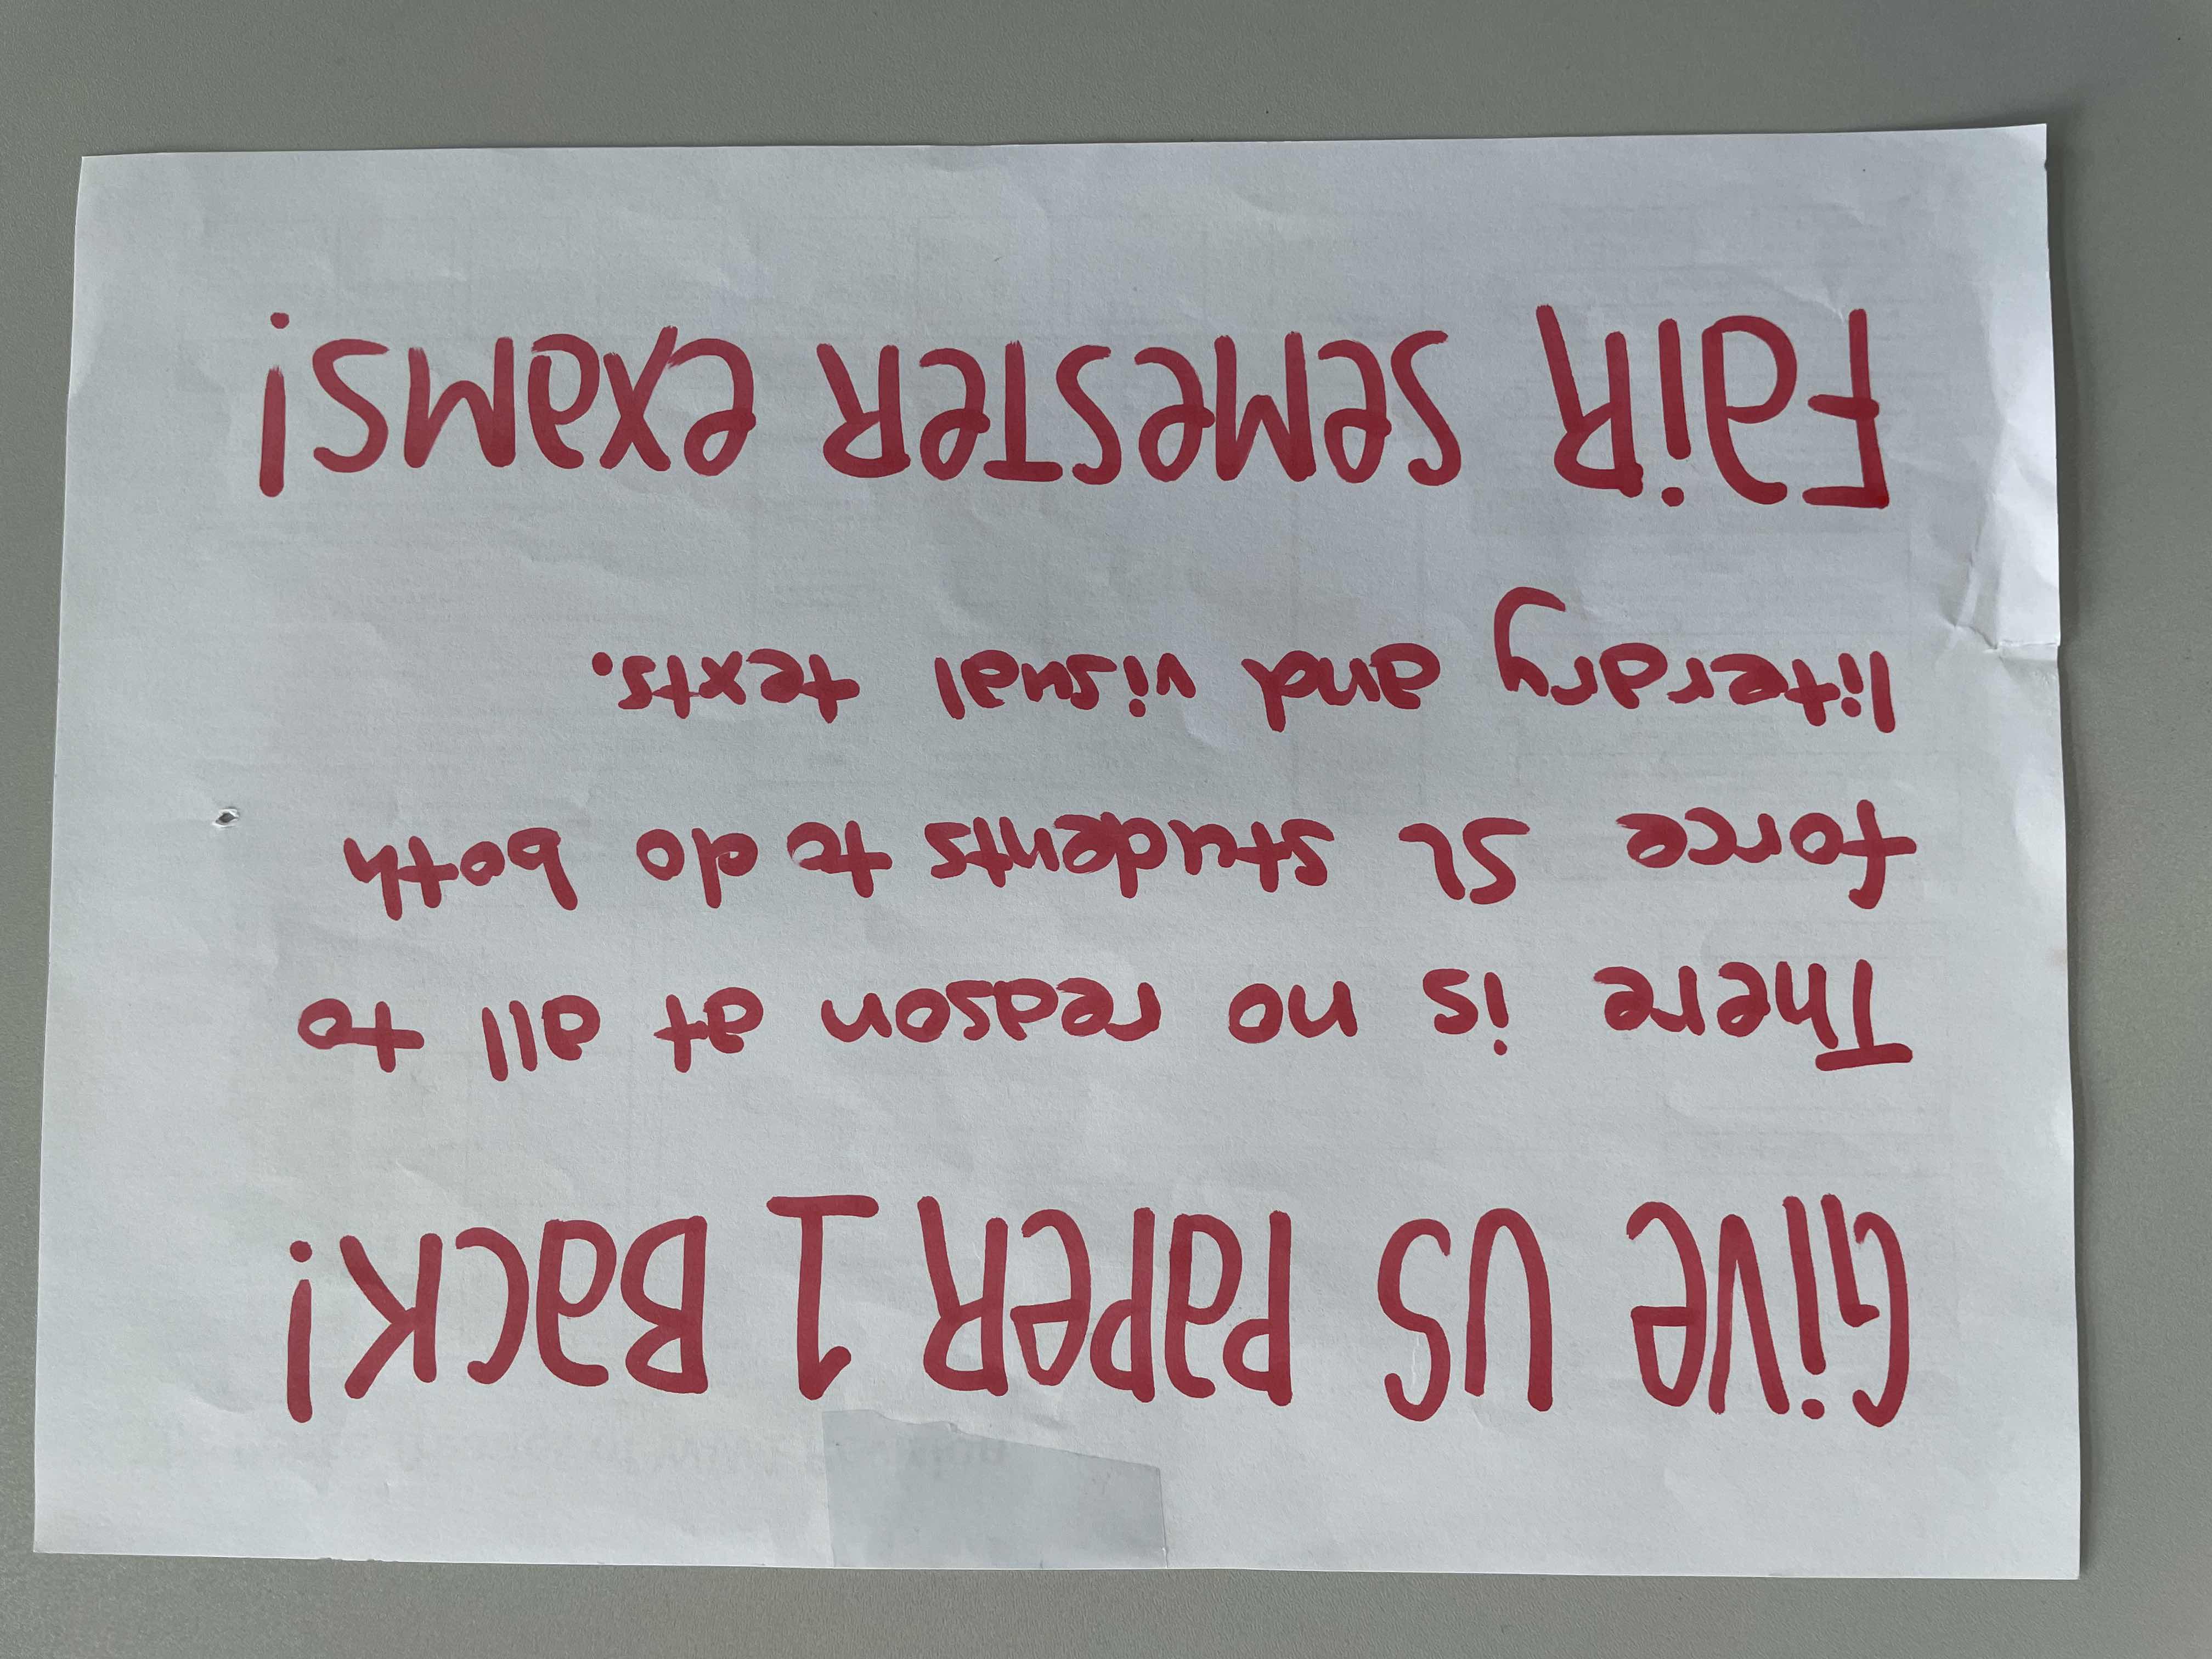 GiVe US PaPeR 1 BaCK!
There is no reason at all to
force SL students to do both
literary and visual texts.
FaiR SeMeSTeR exaMS!